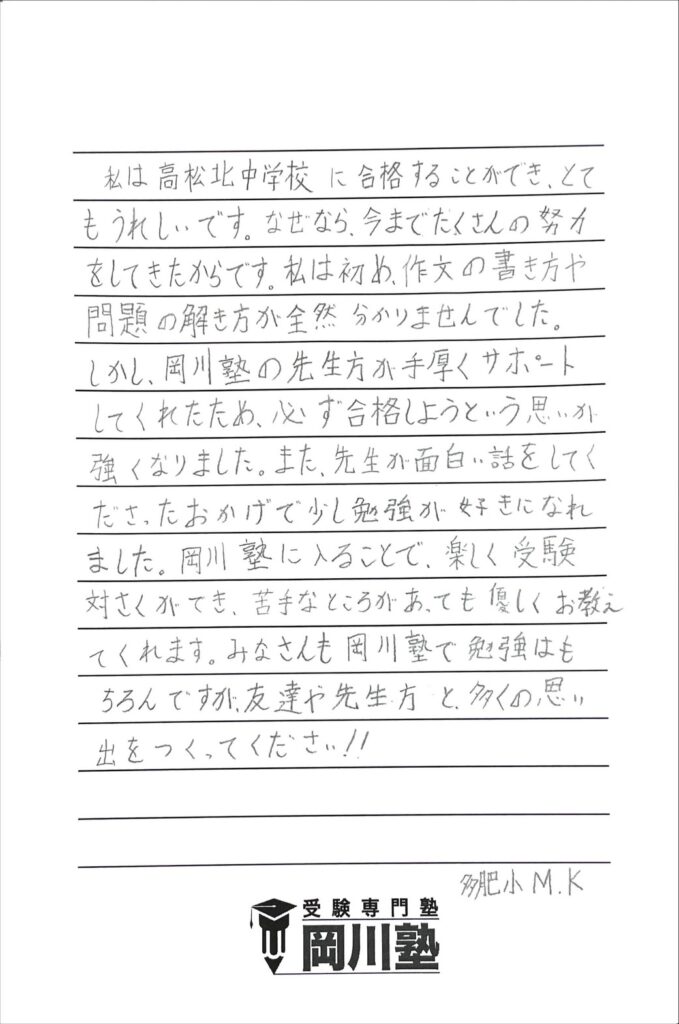 私は高松北中学校に合格することができ、とて
もうれしいです。なぜなら、今までたくさんの努力
をしてきたからです。私は初め、作文の書き方や
問題の解き方が全然分かりませんでした。
しかし、岡川塾の先生方が手厚くサポート
してくれたため、必ず合格しようという思いが
強くなりました。また、先生が面白い話をしてく
ださったおかげで少し勉強が好きになれ
ました。岡川塾に入ることで、楽しく受験
対さくができ、苦手なところがあっても優しくお教え
てくれます。みなさんも岡川塾で勉強はも
ちろんですが、友達や先生方と、多くの思い
出をつくってください!!
多肥小 M.K
受験専門塾
岡川塾